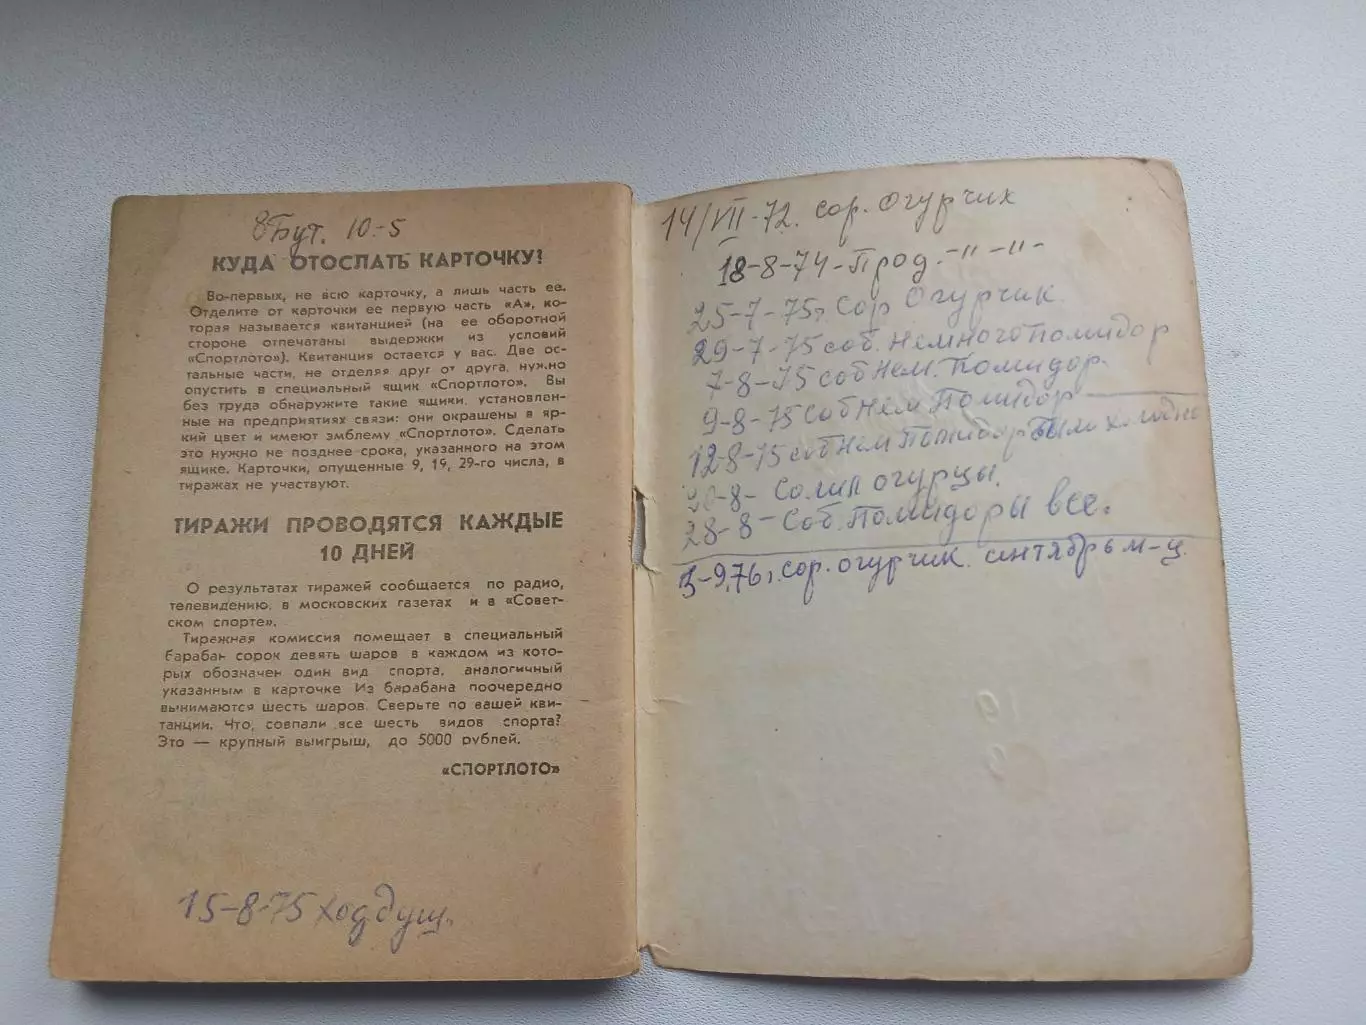 8 Бут. 10-5
КУДА ОТОСЛАТЬ КАРТОЧКУ?
Во-первых, не всю карточку, а лишь часть ее.
Отделите от карточки ее первую часть «А», ко-
торая называется квитанцией (на ее оборотной
стороне отпечатаны выдержки из условий
«Спортлото»). Квитанция остается у вас. Две ос-
тальные части, не отделяя друг от друга, нужно
опустить в специальный ящик «Спортлото». Вы
без труда обнаружите такие ящики, установлен-
ные на предприятиях связи: они окрашены в яр-
кий цвет и имеют эмблему «Спортлото». Сделать
это нужно не позднее срока, указанного на этом
ящике. Карточки, опущенные 9, 19, 29-го числа, в
тиражах не участвуют.
ТИРАЖИ ПРОВОДЯТСЯ КАЖДЫЕ
10 ДНЕЙ
О результатах тиражей сообщается по радио,
телевидению, в московских газетах и в «Совет-
ском спорте».
Тиражная комиссия помещает в специальный
барабан сорок девять шаров в каждом из кото-
рых обозначен один вид спорта, аналогичный
указанным в карточке Из барабана поочередно
вынимаются шесть шаров. Сверьте по вашей кви-
танции. Что, совпали все шесть видов спорта?
Это — крупный выигрыш, до 5000 рублей.
«СПОРТЛОТО»
15-8-75 ход душ.
14/VII-72. сор. Огурчик
18-8-74-Прод.-"-"-
25-7-75г. Сор Огурчик.
29-7-75 соб. немного помидор
7-8-75 соб нем. Помидор.
9-8-75 Соб нем Помидор
12-8-75 соб нем Помидор были холодно
20-8- Солил огурцы.
28-8- Соб. Помидоры все.
3-9,76г. сор. огурчик. синтябрь м-ц.